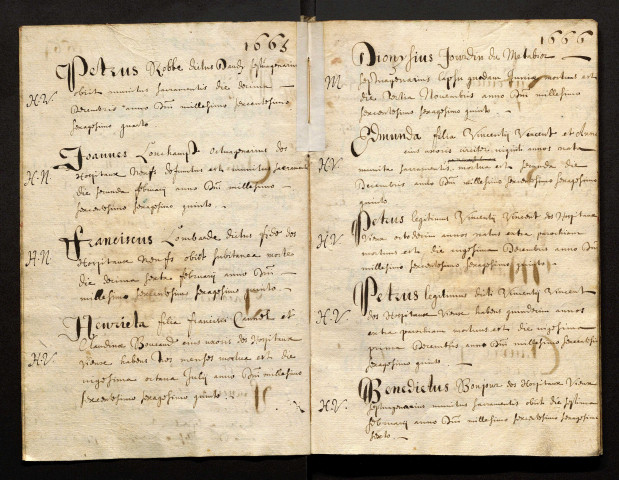 1665
Petrus Robbe dictus septuagenarius
H.V. obiit munitus sacramentis die decima
Decembris anno Dni millesimo sexcentesimo
sexagesimo quarto
Joannes Lonchampt octuagenarius des
H.N. Hospitaux Neufs defunctus est munitus sacramentis
die secunda februarij anno Dni millesimo
sexcentesimo sexagesimo quinto.
Franciscus Lombarde dictus des
H.N. Hospitaux Neufs obiit subitanea morte
die decima sexta februarij anno Dni
millesimo sexcentesimo sexagesimo quinto
Henrieta filia Francisci et
Claudina eius uxoris des Hospitaux
H.V. Vieux habens menses mortua est die
vigesima octava Julij anno Dni millesimo
sexcentesimo sexagesimo quinto
1666
Dionysius Jourdin du Metabier
M. septuagenarius lapsu quodam mortuus est
die Novembris anno Dni millesimo
sexcentesimo sexagesimo quinto.
Edmunda filia Vincentij Vincent et
eius uxoris viginti annos nata
H.V. munita sacramentis mortua est secunda die
Decembris anno Dni millesimo sexcentesimo sexagesimo
quinto
Petrus legitimus Vincentij Vincent des Hospitaux
H.V. Vieux annos natus extra parochiam
mortuus est die vigesima Decembris anno Dni
millesimo sexcentesimo sexagesimo quinto.
Petrus legitimus dicti Vincentij Vincent
H.V. des Hospitaux Vieux habens quindecim annos
extra parochiam mortuus est die vigesima
prima Decembris anno Dni millesimo sexcentesimo
sexagesimo quinto
Benedictus Bonjour des Hospitaux Vieux
H.V. septuagenarius munitus sacramentis obiit die septima
februarij anno Dni millesimo sexcentesimo sexagesimo
sexto.